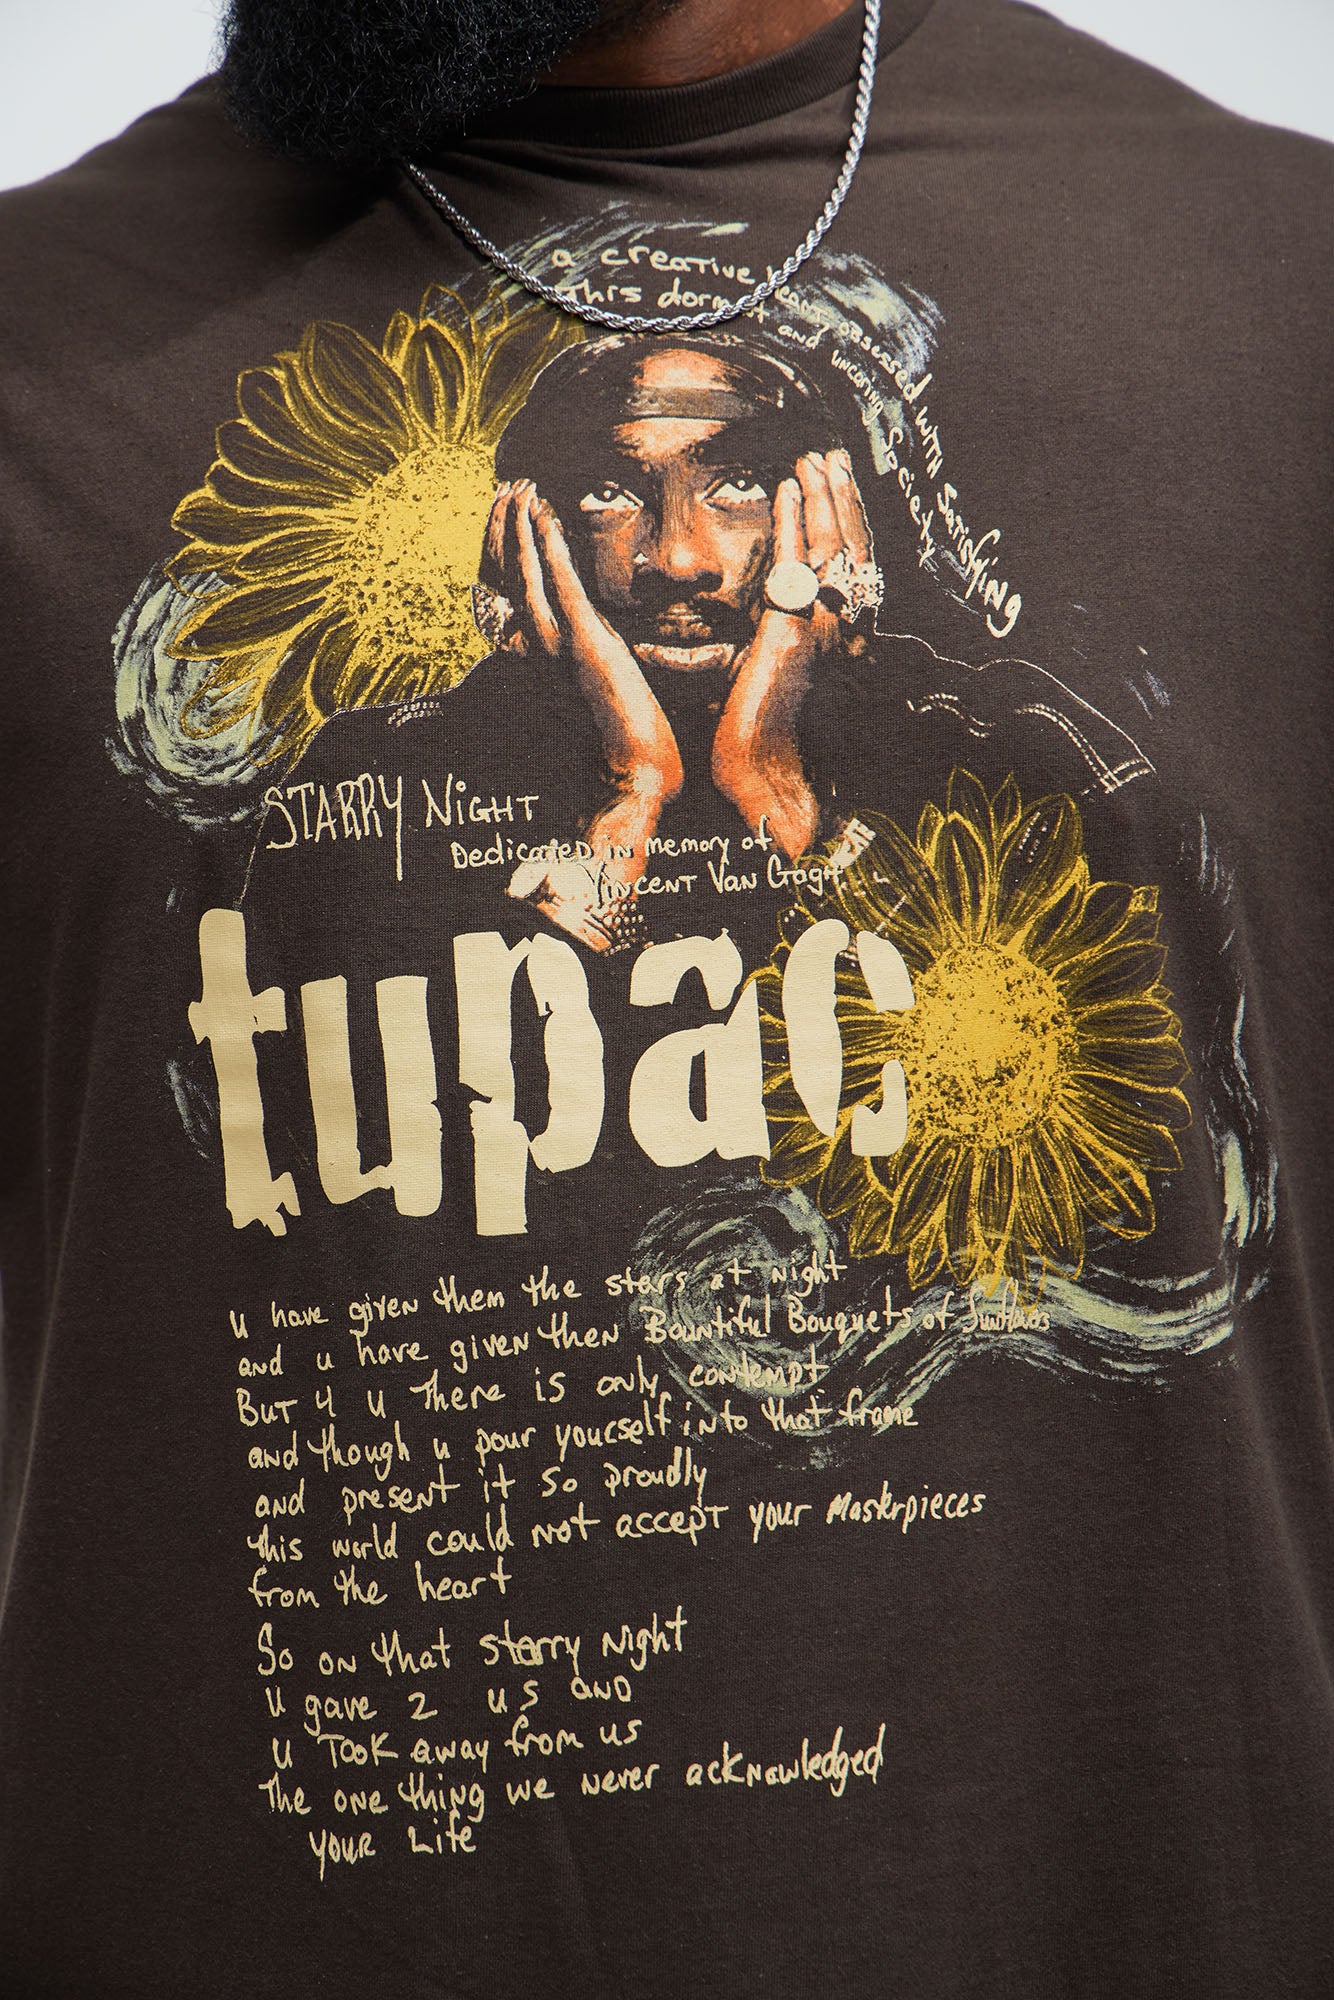 a creative heart, obsessed with satisfying
this dormant and uncaring society
STARRY NiGHT
Dedicated in memory of
Vincent Van Gogh
tupac
u have given them the stars at night
and u have given then Bountiful Bouquets of Sunflowers
But 4 u there is only contempt
and though u pour yourself into that frame
and present it so proudly
this world could not accept your Masterpieces
from the heart
So on that starry night
u gave 2 us and
u Took away from us
The one thing we never acknowledged
your Life